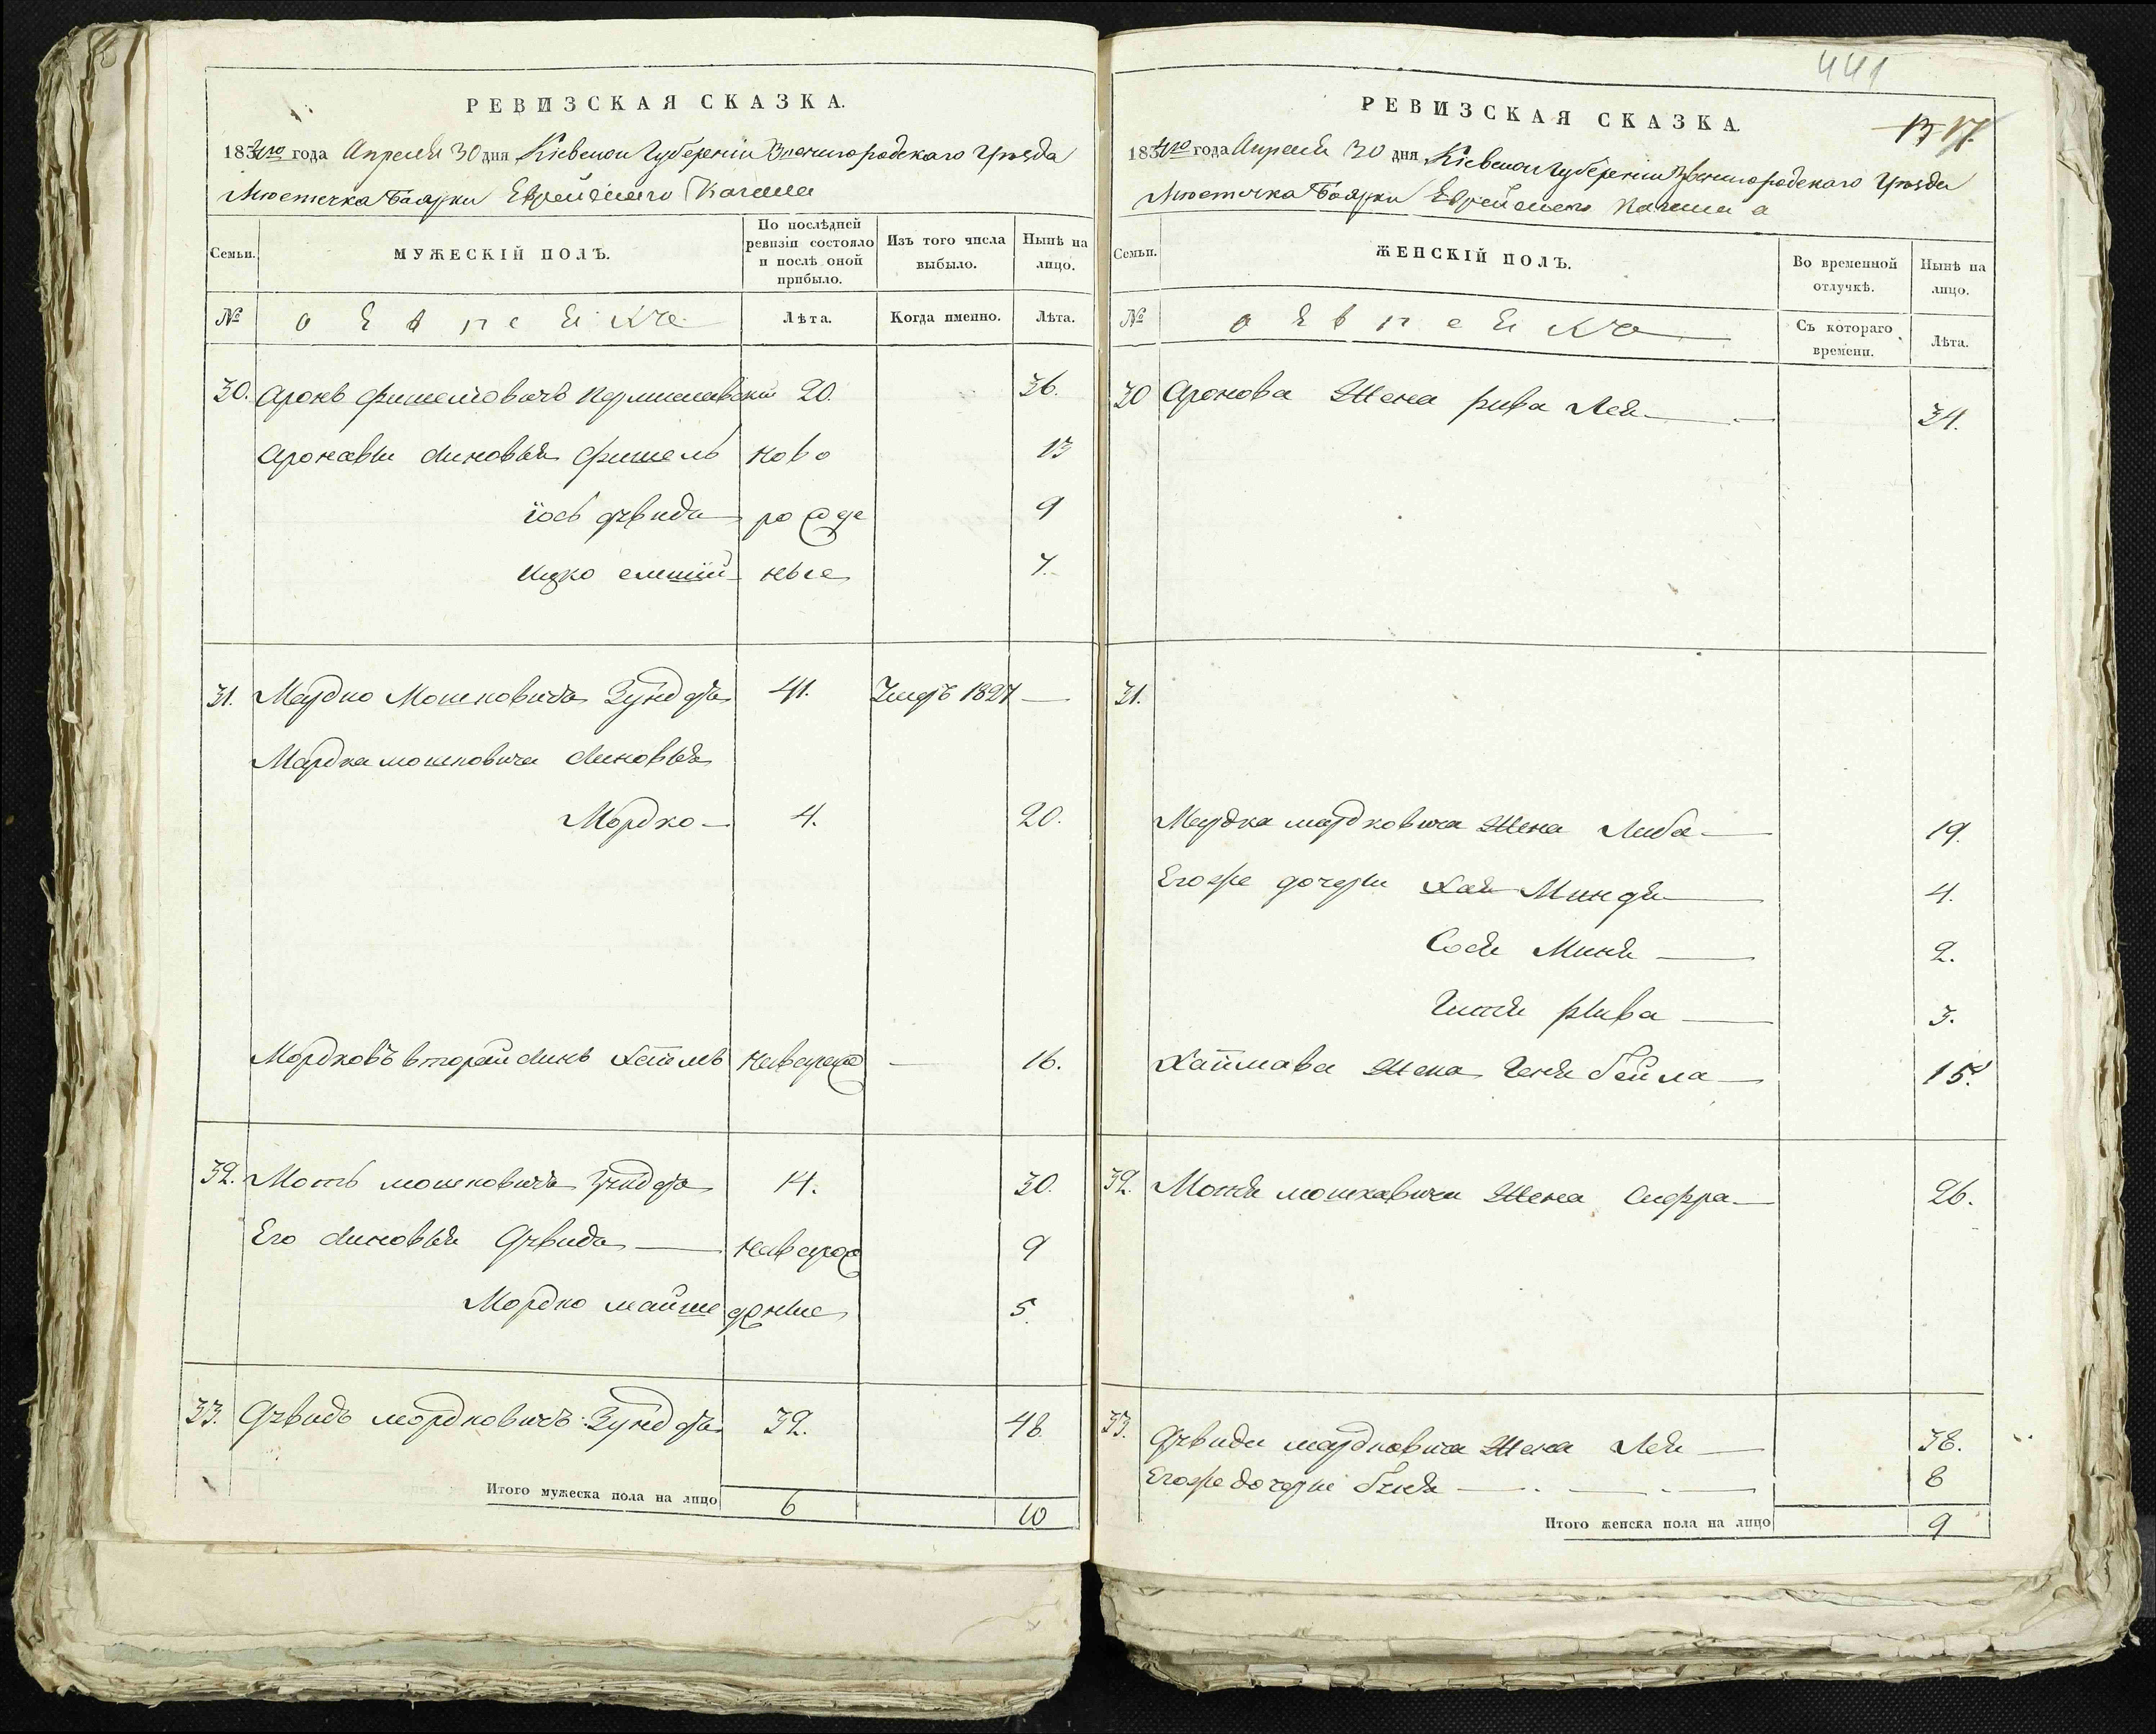 РЕВИЗСКАЯ СКАЗКА.
1834го года Апреля 30 дня Кіевской Губерніи Звенигородскаго Уѣзда
Мѣстечка Боярки Еврейского Кагала
Семьи.
МУЖЕСКІЙ ПОЛЪ.
По послѣдней ревизіи состояло и послѣ оной прибыло.
Изъ того числа выбыло.
Нынѣ на лицо.
№
о Е в р е и к ъ
Лѣта.
Когда именно.
Лѣта.
30. Аронъ Фишелювичъ 20. 36.
Ароновы синовья Фишель ново 13
іось дувидъ рожде 9
Ицко ные 7.
31. Мардко Мошковичъ Зундъ 41. Умеръ 1827 —
Мардка мошковича синовья
Мордко — 4. 20.
Мордковъ вторый синъ Хаимъ — 16.
32. Моть мошковичъ 14. 30.
Его синовья Дувидъ — 9
Мордко майше 5.
33. Дувидъ мордковичъ Зундъ 32. 48
Итого мужеска пола на лицо 6 10
441
РЕВИЗСКАЯ СКАЗКА.
17.
1834го года Апреля 30 дня Кіевской Губерніи Звенигородскаго Уѣзда
Мѣстечка Боярки Еврейского Кагала
Семьи.
ЖЕНСКІЙ ПОЛЪ.
Во временной отлучкѣ.
Нынѣ на лицо.
№
о Е в р е и к ъ
Съ котораго времени.
Лѣта.
30 Аронова Жена рива Лея — 34.
31.
Мардка мардковича Жена Либа — 19.
Егоже дочери Хая Миндя — 4.
Сося Миня — 2.
Гитя рива — 3.
Хаимова Жена Геня бейла — 15.
32. Мотя мошковича Жена Сифра — 26.
33. Дувида мардковича Жена Лея — 38.
Егоже дочери — 8
Итого женска пола на лицо 9